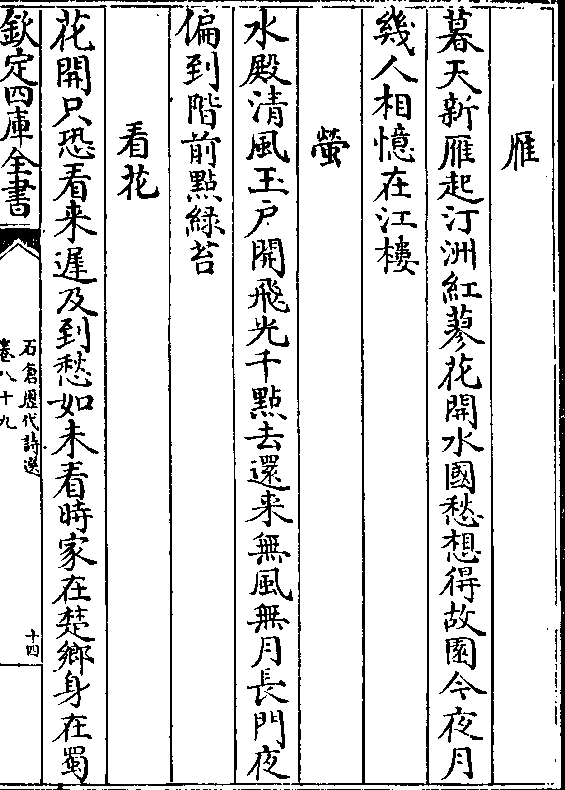 雁
暮天新雁起汀洲紅蓼花開水國愁想得故園今夜月
幾人相憶在江樓
螢
水殿清風玉戶開飛光千點去還来無風無月長門夜
偏到階前點綠苔
看花
花開只恐看来遲及到愁如未看時家在楚鄉身在蜀
欽定四庫全書
石倉歷代詩選
卷八十九
十四